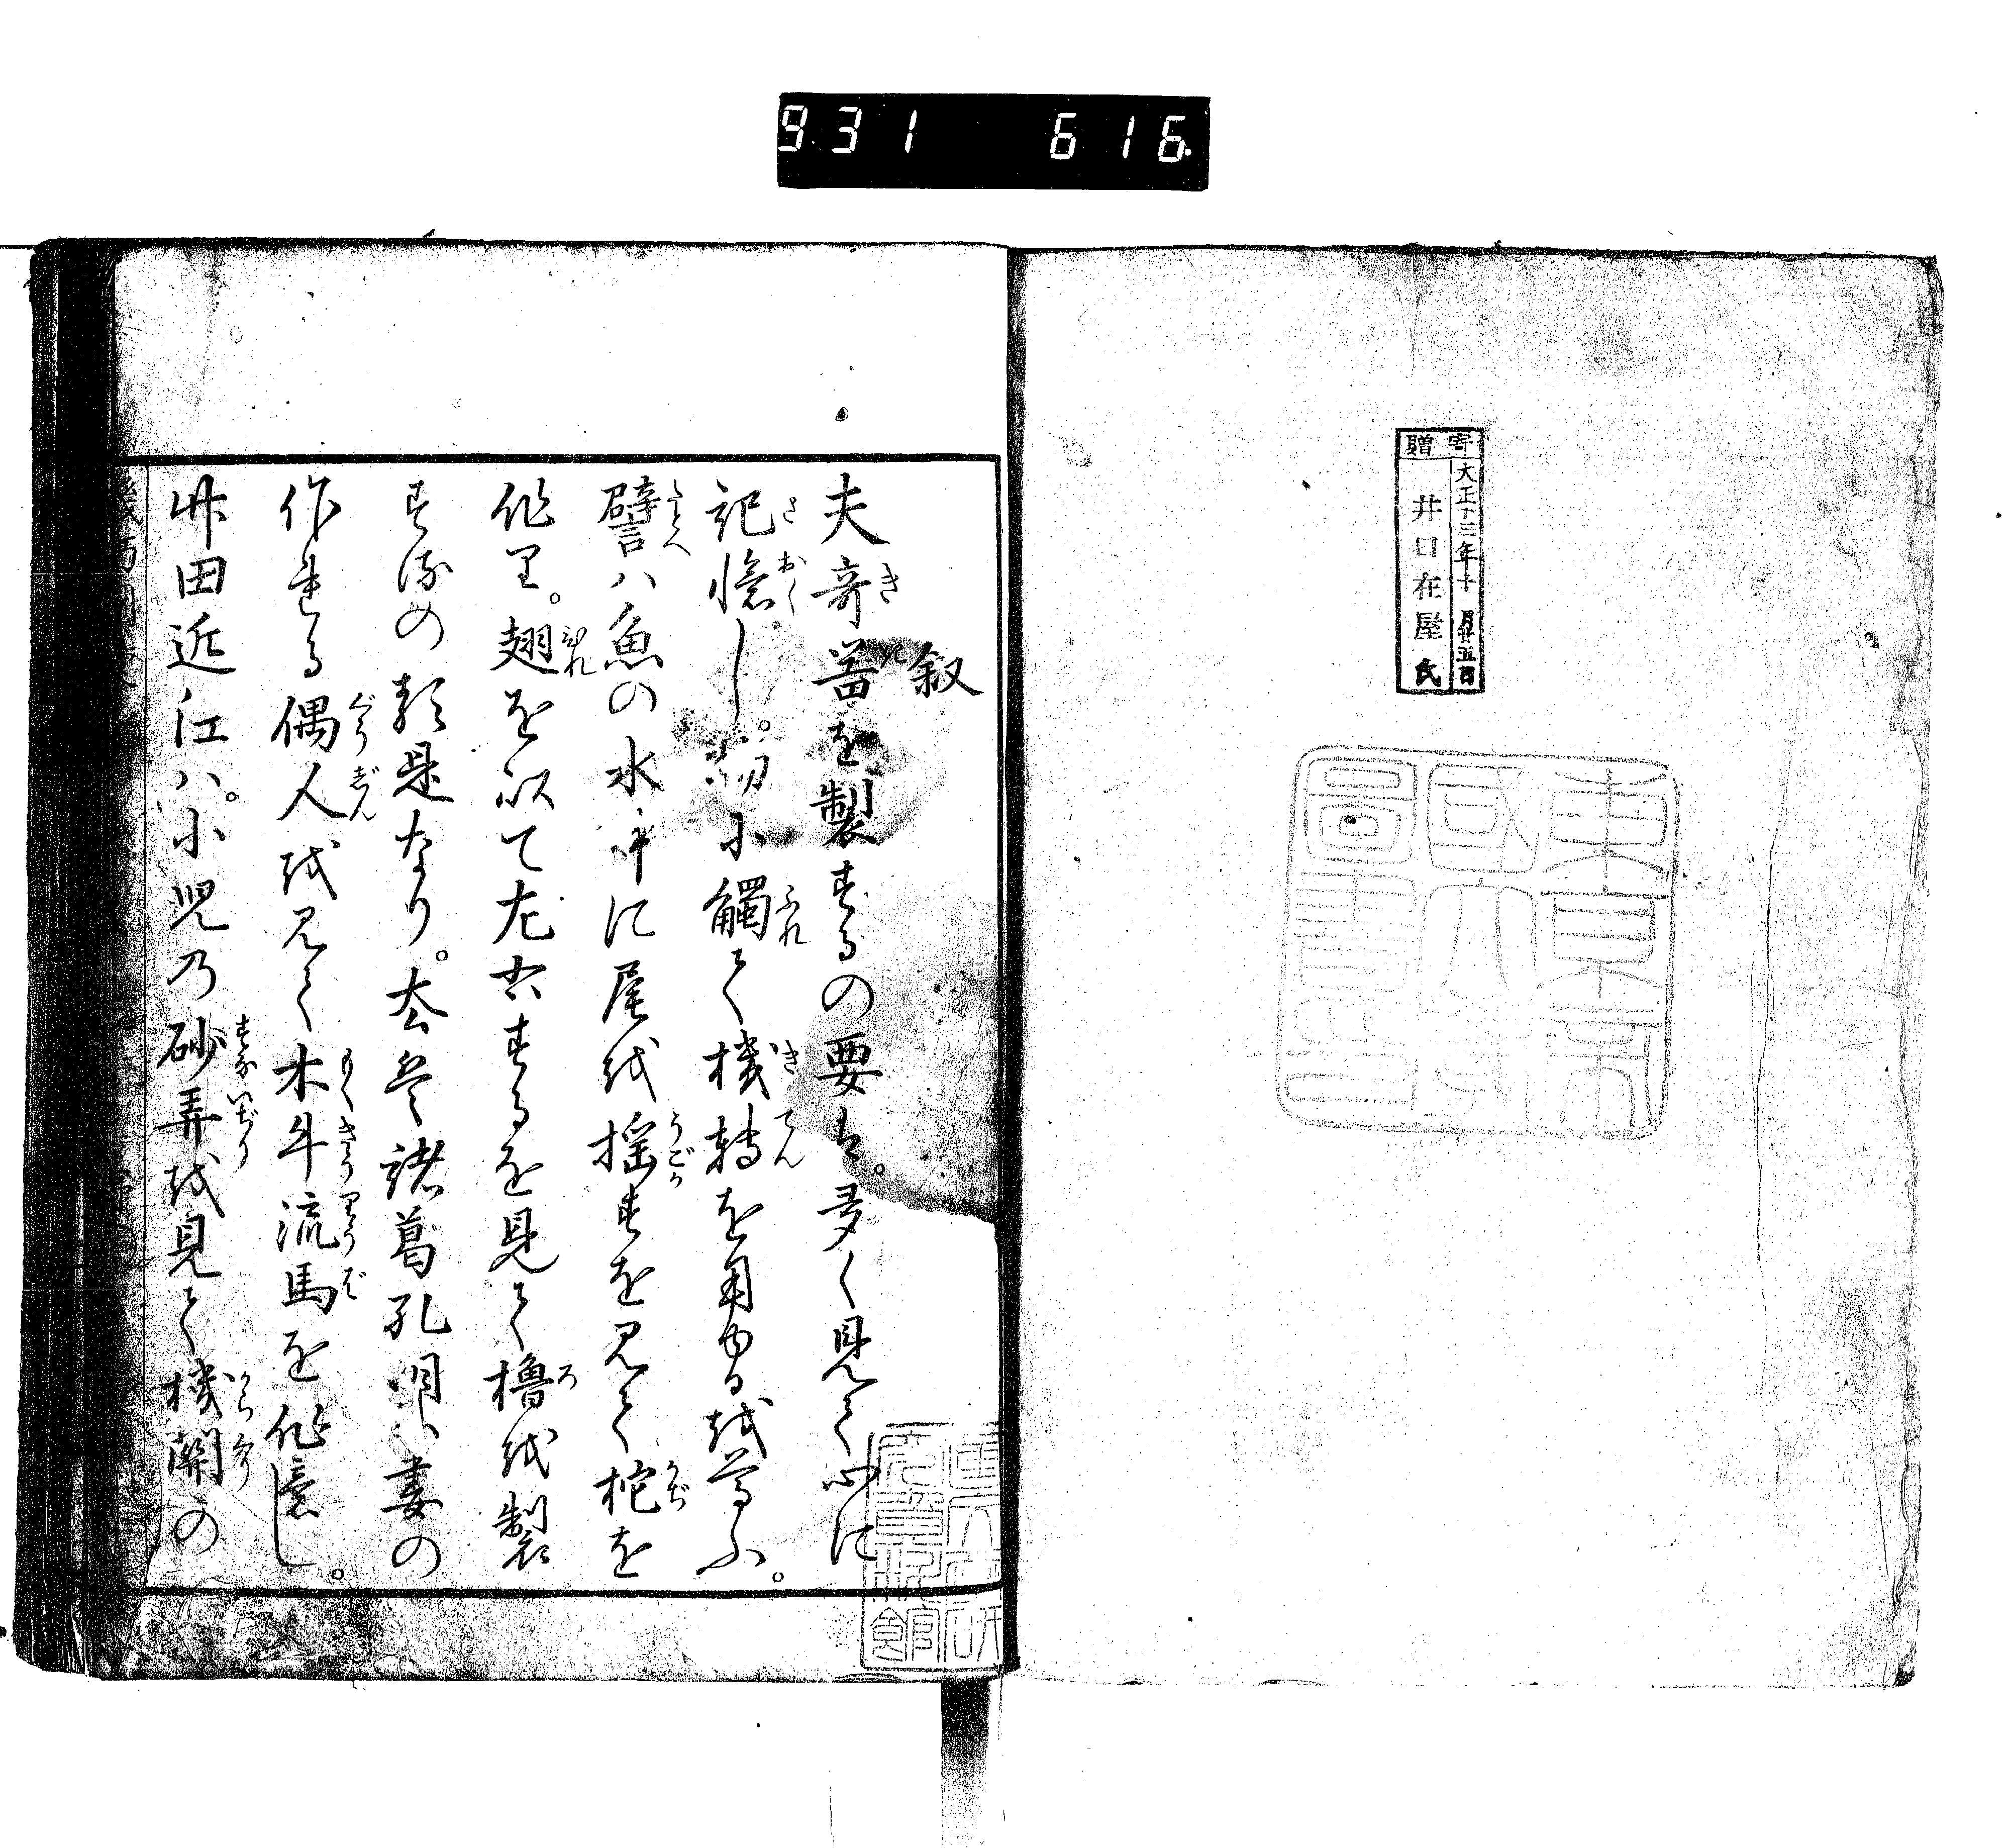 931 616
寄贈
大正十三年十月廿五日
井口在屋氏
東京帝国大学図書印
叙
夫奇器を製するの要は。多く見て心に
記憶し。物に觸て機転を用ゆるを尊ふ。
譬ハ魚の水中に尾を揺すを見て柁を
作り。翅を以て左右するを見て櫓を製
するの類是なり。太公望諸葛孔明ハ妻の
作れる偶人を見て木牛流馬を作意し。
竹田近江ハ。小児乃砂弄を見て機関の